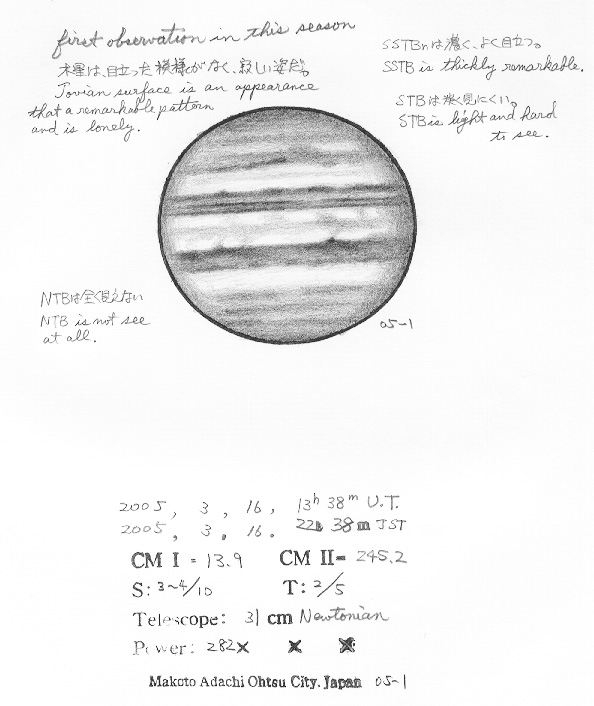 first observation in this season
木星は、目立った模様がなく、寂しい姿だ。
Jovian surface is an appearance
that a remarkable pattern
and is lonely.
SSTBnは濃く、よく目立つ。
SSTB is thickly remarkable.
STBは淡く見にくい。
STB is light and hard
to see.
NTBは全く見えない
NTB is not see
at all.
05-1
2005, 3, 16, 13h 38m U.T.
2005, 3, 16. 22h 38m JST
CM I = 13.9 CM II= 245.2
S: 3~4/10 T: 2/5
Telescope: 31 cm Newtonian
Power: 282× × ×
Makoto Adachi Ohtsu City. Japan 05-1